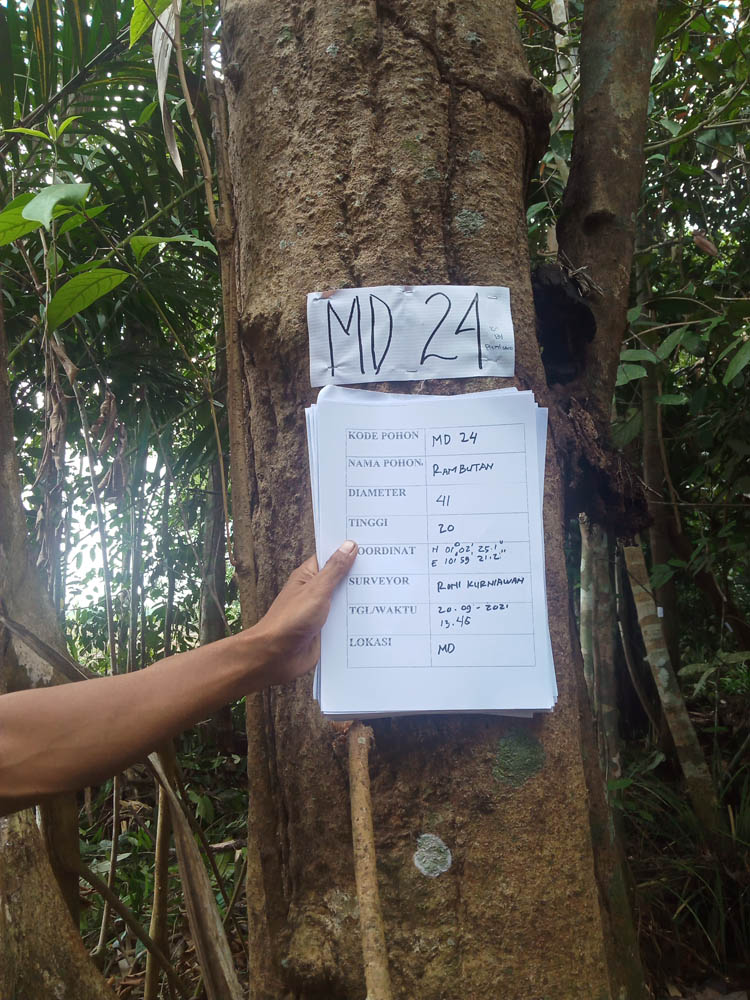 MD 24
KODE POHON MD 24
NAMA POHON. RAMBUTAN
DIAMETER 41
TINGGI 20
COORDINAT N 01° 02' 25.1"
E 10° 59' 21.2"
SURVEYOR ROMI KURNIAWAN
TGL/WAKTU 20-09-2021
13.45
LOKASI MD